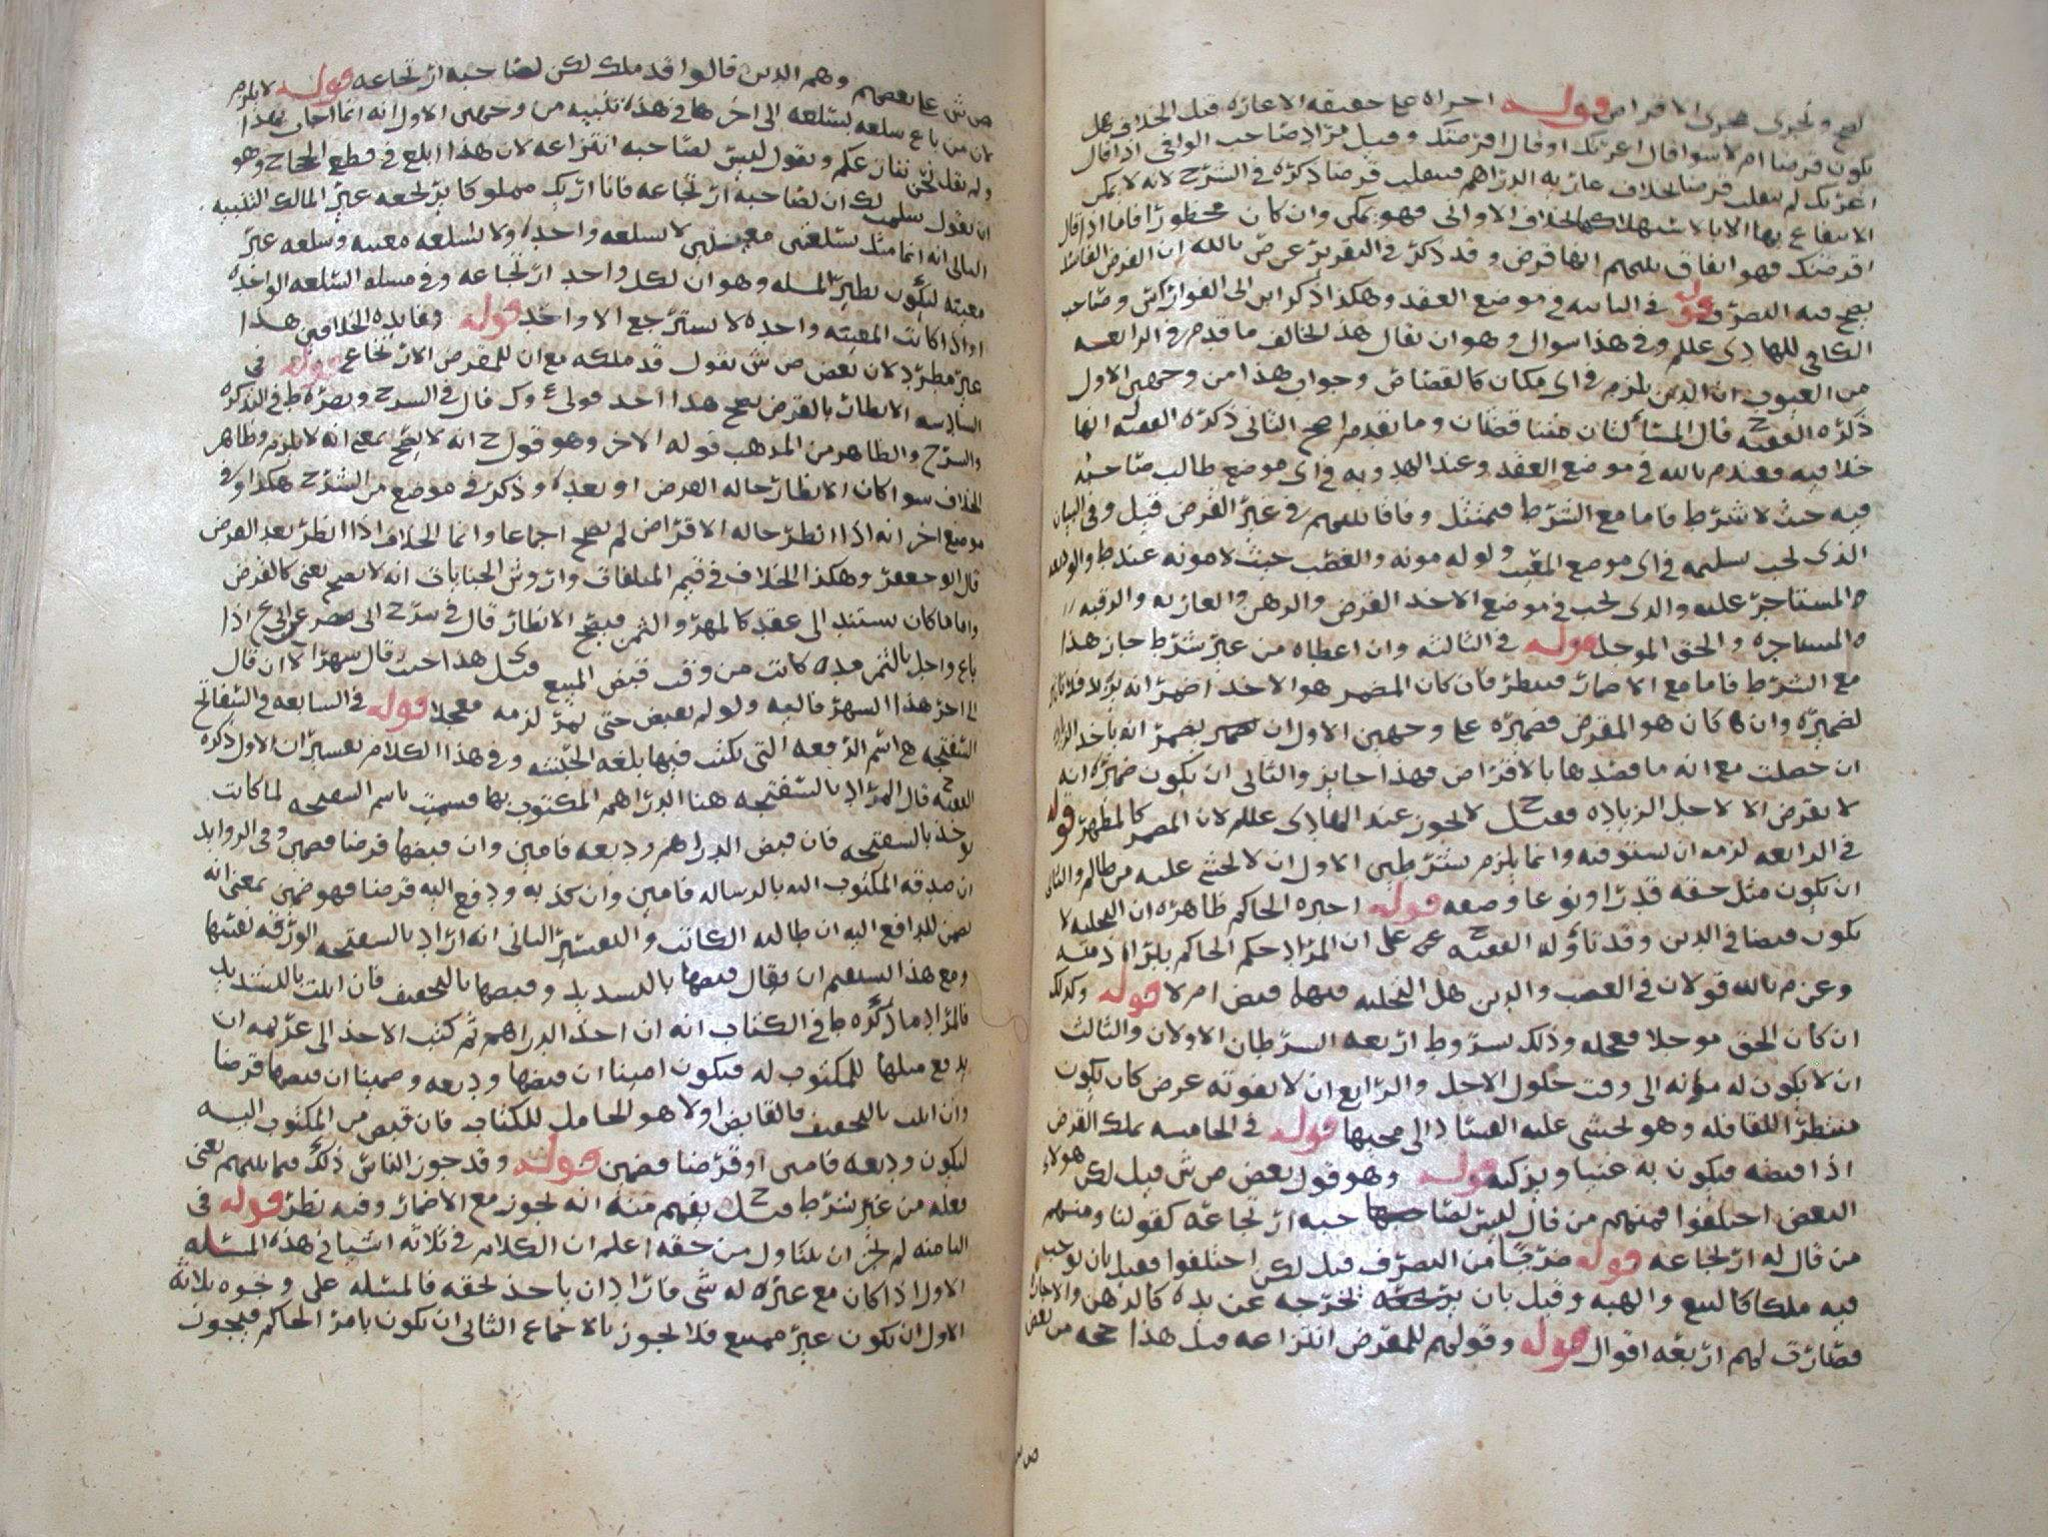 يصح ويجرى مجرى الاقراض قوله اجراه على حقيقه الاعاره قبل الخلاف هل
يكون قرضا ام لا سوا قال اعرتك او قال اقرضتك وقيل مراد صاحب الوافى اذا قال
اعرتك لم ينقلب قرضا بخلاف عاريه الدراهم فينقلب قرضا ذكره فى الشرح لانه لا يمكن
الانتفاع بها الا بالاستهلاك بخلاف الاوانى فهو يمكن وان كان محظورا فاما اذا قال
اقرضتك فهو اتفاق بينهم انها قرض وقد ذكر فى التقرير عن ص بالله ان القرض الفاسد
يصح فيه التصرف قوله فى الثانيه فى موضع العقد وهكذا ذكر ابن ابى الفوارس وصاحب
الكافى للهادى علم وفى هذا سوال وهو ان يقال هذا يخالف ما قدم فى الرابعه
من العيوب ان الدين يلزم فى اى مكان كالقصاص وجواب هذا من وجهين الاول
ذكره الفقيه ح قال المسألتان هنا قضتان وما تقدم اصح الثانى ذكره الفقيه انها
خلافيه فعند م بالله فى موضع العقد وعند الهدويه فى اى موضع طالب صاحبه
فيه حيث لا شرط فاما مع الشرط فيمتثل وفاقا بينهم فى غير القرض قيل وفى البيان
الذى يجب تسليمه فى اى موضع المعيب ولو له مونه والغصب حيث لا مونه عند ط والوديعه
والمستاجر عليه والذى يجب فى موضع الاخذ القرض والرهن والعاريه والرقبه
والمستاجره والحق الموجل قوله فى الثالثه وان اعطاه من غير شرط جاز هذا
مع الشرط فاما مع الاضمار فينظر فان كان المضمر هو الاخذ اضمر انه يزيد فلا تاثير
لضميره وان كان هو المقرض فضميره على وجهين الاول ان يضمر انه ياخذ الزياده
ان حصلت مع انه ما قصدها بالاقراض فهذا جايز والثانى ان يكون ضميره انه
لا يقرض الا لاجل الزياده فقيل ح لا يجوز عند الهادى علم لان المضمر كالمظهر قوله
فى الرابعه لزمه ان يستوفيه وانما يلزم بشرطين الاول ان لا يخشى عليه من ظالم والثانى
ان يكون مثل حقه قدرا ونوعا وصفه قوله اجبره الحاكم ظاهره ان التخليه لا
يكون قبضا فى الدين وقد تأوله الفقيه ح على ان المراد حكم الحاكم ببراة ذمته
وعن م بالله قولان فى الغصب والدين هل التخليه فيهما قبض ام لا قوله وكذلك
ان كان الحق موجلا فعجله وذلك بشروط اربعه الشرطان الاولان والثالث
ان لا يكون له مؤنه الى وقت حلول الاجل والرابع ان لا يفوته غرض كان يكون
منتظرا للقافله وهو يخشى عليه الفساد الى مجيها قوله فى الخامسه يملك القرض
اذا قبضه فيكون به غنيا ويزكيه قوله وهو قول بعض ص ش قيل لكن هولاء
البعض اختلفوا فمنهم من قال ليس لصاحبه ارتجاعه كقولنا ومنهم
من قال له ارتجاعه قوله ضربا من التصرف قيل لكن اختلفوا فقيل بان يوجب
فيه ملكا كالبيع والهبه وقيل بان يخرجه عن يده كالرهن والاجاره
فصارت لهم اربعه اقوال قوله وقولهم للمقرض انتزاعه قيل هذا حجه من بعض
ص ش على بعضهم وهم الذين قالوا قد ملك لكن لصاحبه ارتجاعه قوله لا يلزم
كان من باع سلعه بسلعه الى اخرها فى هذه تنبيه من وجهين الاول انه انما اجاب بهذا
ولم يقل نحن نقلب عليكم ونقول ليس لصاحبه انتزاعه لان هذا ابلغ فى قطع الحجاج وهو
ان نقول سلمت لك ان لصاحبه ارتجاعه فانا اريك مملوكا يرتجعه غير المالك التنبيه
الثانى انه انما مثل بسلعتين معينتين لا بسلعه واحده ولا بسلعه معينه وسلعه غير
معينه ليكون نظير المسله وهو ان لكل واحد ارتجاعه وفى مسله السلعه الواحده
او اذا كانت المعينه واحده لا يسترجع الا واحد قوله وفايده الخلاف هذا
غير مطرد لان بعض ص ش يقول قد ملكه مع ان للمقرض الارتجاع قوله فى
السادسه الانظار بالقرض يصح هذا احد قولى ع وك قال فى الشرح ونصره ط فى التذكره
والشرح والظاهر من المذهب قوله الاخر وهو قول ح انه لا يصح بمعنى انه لا يلزم وظاهر
الخلاف سوا كان الانظار حاله القرض او بعده وذكر فى موضع من الشرح هكذا وفى
موضع اخر انه اذا انظر حاله الاقراض لم يصح اجماعا وانما الخلاف اذا انظر بعد القرض
قال ابو جعفر وهكذا الخلاف فى قيم المتلفات واروش الجنايات انه لا يصح يعنى كالقرض
واما ما كان يستند الى عقد كالمهر والثمن فيصح الانظار قال فى شرح ابى مضر عن ابى ع اذا
باع واجل بالثمن مده كانت من وقت قبض المبيع وقيل هذا حيث قال شهرا لا ان قال
الى اخر هذا الشهر فاليه ولو لم يقبض حتى يمر لزمه معجلا قوله فى السابعه فى السفاتج
السفتجه هى اسم الرقعه التى يكتب فيها بلغه الحبشه وفى هذا الكلام تفسيران الاول ذكره
الفقيه ح قال المراد بالسفتجه هنا الدراهم المكتوب بها فسميت باسم السفتجه لما كانت
توخذ بالسفتجه فان قبض الدراهم وديعه فامين وان قبضها قرضا فضمين وفى الزوايد
ان صدقه المكتوب اليه بالرساله فامين وان كذبه ودفع اليه قرضا فهو ضمين بمعنى انه
يضمن للدافع اليه ان طالبه الكاتب والتفسير الثانى انه اراد بالسفتجه الورقه نفسها
ومع هذا يستقيم ان يقال قبضها بالتشديد وقبضها بالتخفيف فان اتيت بالتشديد
فالمراد ما ذكره ط فى الكتاب انه ان اخذ الدراهم ثم كتب الاخذ الى غريمه ان
يدفع مثلها للمكتوب له فيكون امينا ان قبضها وديعه وضمينا ان قبضها قرضا
وان اتيت بالتخفيف فالقابض اولا هو الحامل للكتاب فان قبض من المكتوب اليه
ليكون وديعه فامين او قرضا فضمين قوله وقد جوز الناس ذلك فيما بينهم يعنى
فعله من غير شرط قيل ح يفهم منه انه يجوز مع الاضمار وفيه نظر قوله فى
الثامنه لم يجز ان يتناول من حقه اعلم ان الكلام فى ثلاثه اشيا فى هذه المسئله
الاول اذا كان مع غيره له شى فاراد ان ياخذ بحقه فالمسئله على وجوه ثلاثه
الاول ان يكون غير ممتنع فلا يجوز بالاجماع الثانى ان يكون بامر الحاكم فيجوز